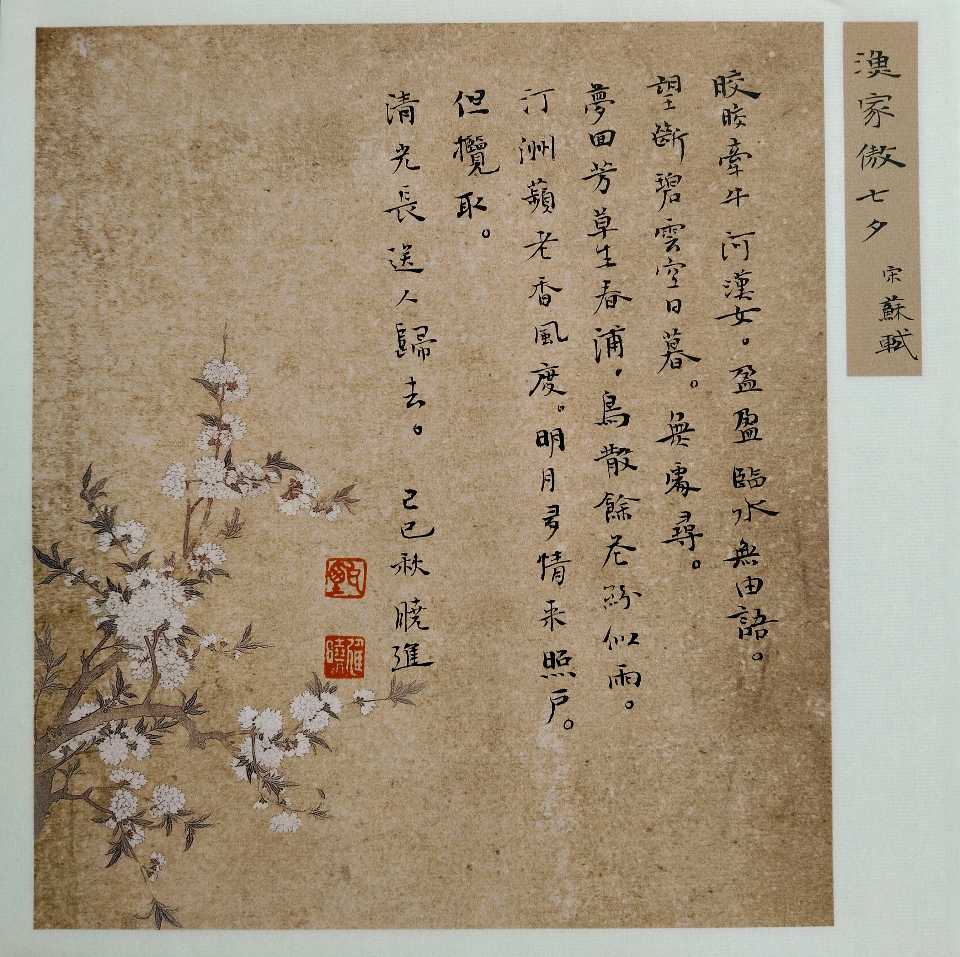 漁家傲七夕
宋蘇軾
皎皎牽牛河漢女。盈盈臨水無由語。
望斷碧雲空日暮。無處尋。
夢回芳草生春浦,鳥散餘花紛似雨。
汀洲蘋老香風度。明月多情來照戶。
但攬取。
清光長送人歸去。 己巳秋 曉